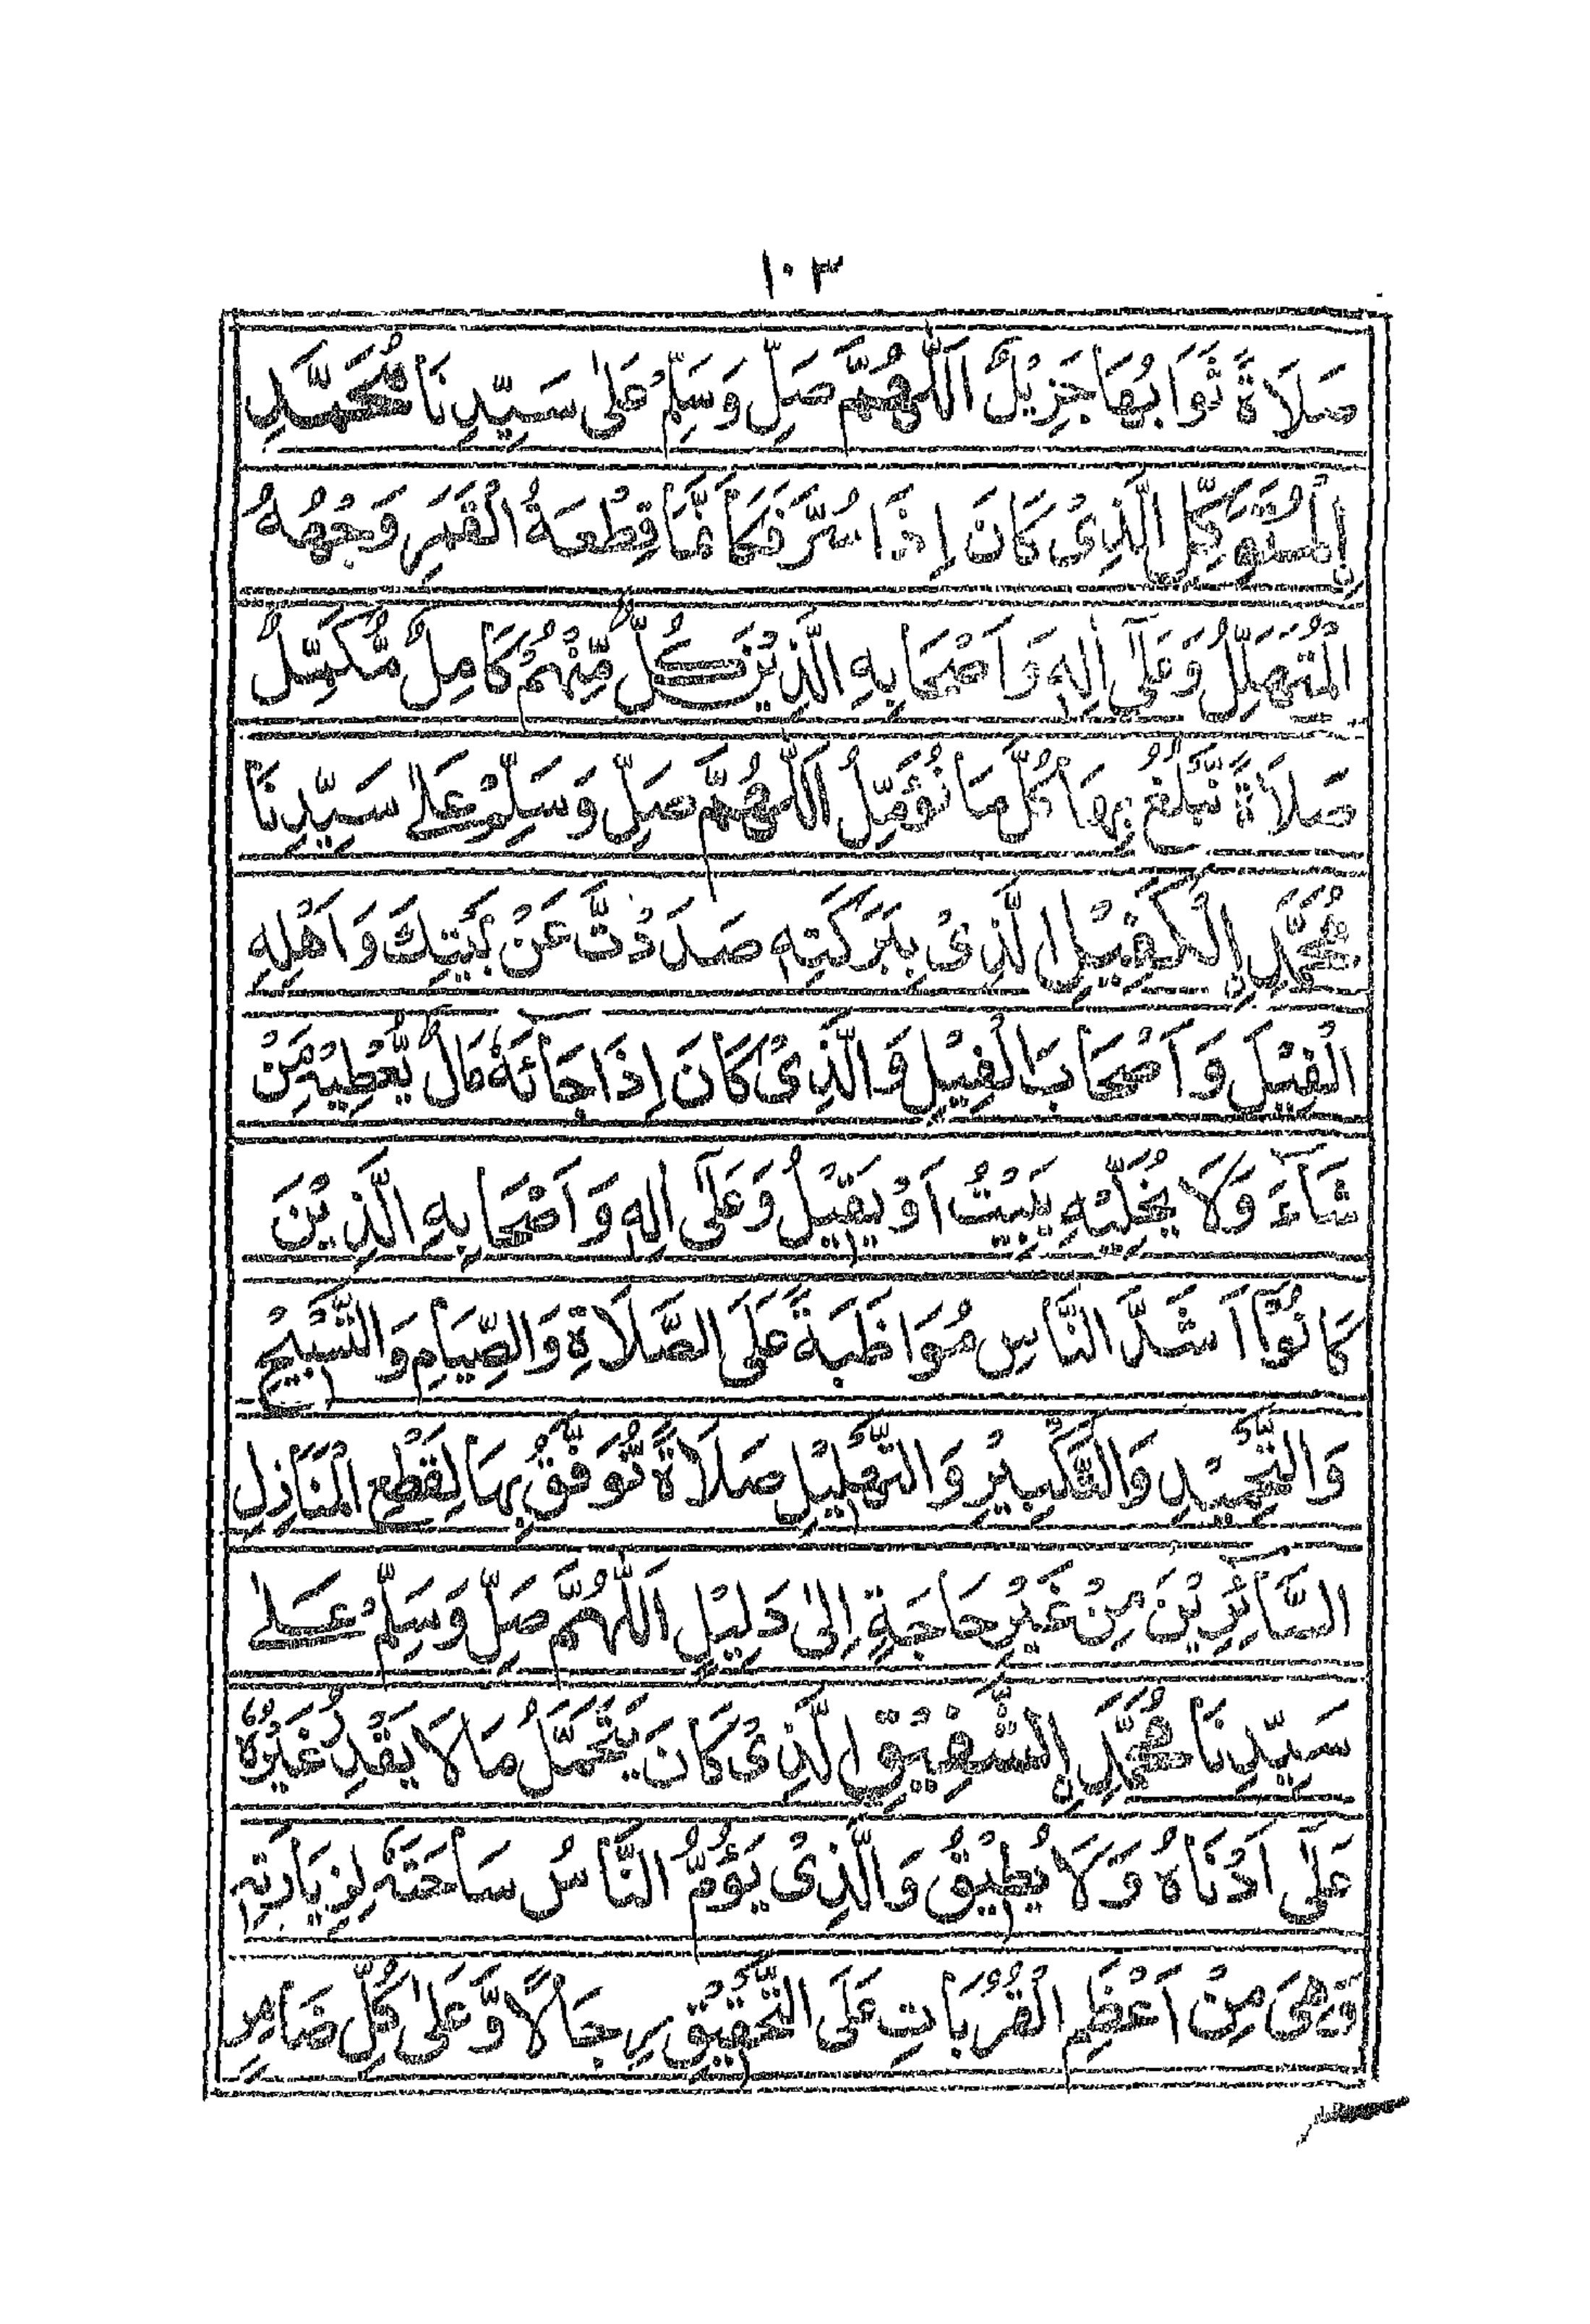 ١٠٣
صَلَاةً ثَوَابُهَا جَزِيْلٌ اَللّٰهُمَّ صَلِّ وَسَلِّمْ عَلٰى سَيِّدِنَا مُحَمَّدِ
نِ الْمُتَوَكِّلِ الَّذِىْ كَانَ اِذَا سُرَّ فَكَاَنَّمَا قِطْعَةُ الْقَمَرِ وَجْهُهُ
الْمُتَهَلِّلُ وَعَلٰٓى اٰلِهٖ وَاَصْحَابِهِ الَّذِيْنَ كُلٌّ مِّنْهُمْ كَامِلٌ مُّكَمِّلٌ
صَلَاةً نَّبْلُغُ بِهَا كُلَّ مَا نُؤَمِّلُ اَللّٰهُمَّ صَلِّ وَسَلِّمْ عَلٰى سَيِّدِنَا
مُحَمَّدِ نِ الْكَفِيْلِ الَّذِىْ بِبَرَكَتِهٖ صَدَدْتَّ عَنْ بَيْتِكَ وَاَهْلِهِ
الْفِيْلَ وَاَصْحَابَ الْفِيْلِ وَالَّذِىْ كَانَ اِذَا جَائَهٗ مَالٌ يُّعْطِيْهِ مَنْ
شَآءَ وَلَا يُخَلِّيْهِ يَبِيْتُ اَوْ يَقِيْلُ وَعَلٰٓى اٰلِهٖ وَاَصْحَابِهِ الَّذِيْنَ
كَانُوْٓا اَشَدَّ النَّاسِ مُوَاظَبَةً عَلَى الصَّلَاةِ وَالصِّيَامِ وَالتَّسْبِيْحِ
وَالتَّحْمِيْدِ وَالتَّكْبِيْرِ وَالتَّهْلِيْلِ صَلَاةً نُّوَفَّقُ بِهَا لِقَطْعِ الْمَنَازِلِ
السَّائِرِيْنَ مِنْ غَيْرِ حَاجَةٍ اِلٰى دَلِيْلٍ اَللّٰهُمَّ صَلِّ وَسَلِّمْ عَلٰى
سَيِّدِنَا مُحَمَّدِ نِ الشَّفِيْقِ الَّذِىْ كَانَ يَتَحَمَّلُ مَا لَا يَقْدِرُ غَيْرُهٗ
عَلٰٓى اَدْنَاهُ وَلَا يُطِيْقُ وَالَّذِىْ يَؤُمُّ النَّاسُ سَاحَتَهٗ لِزِيَارَتِهٖ
وَهِىَ مِنْ اَعْظَمِ الْقُرُبَاتِ عَلَى التَّحْقِيْقِ رِجَالًا وَّعَلٰى كُلِّ ضَامِرٍ